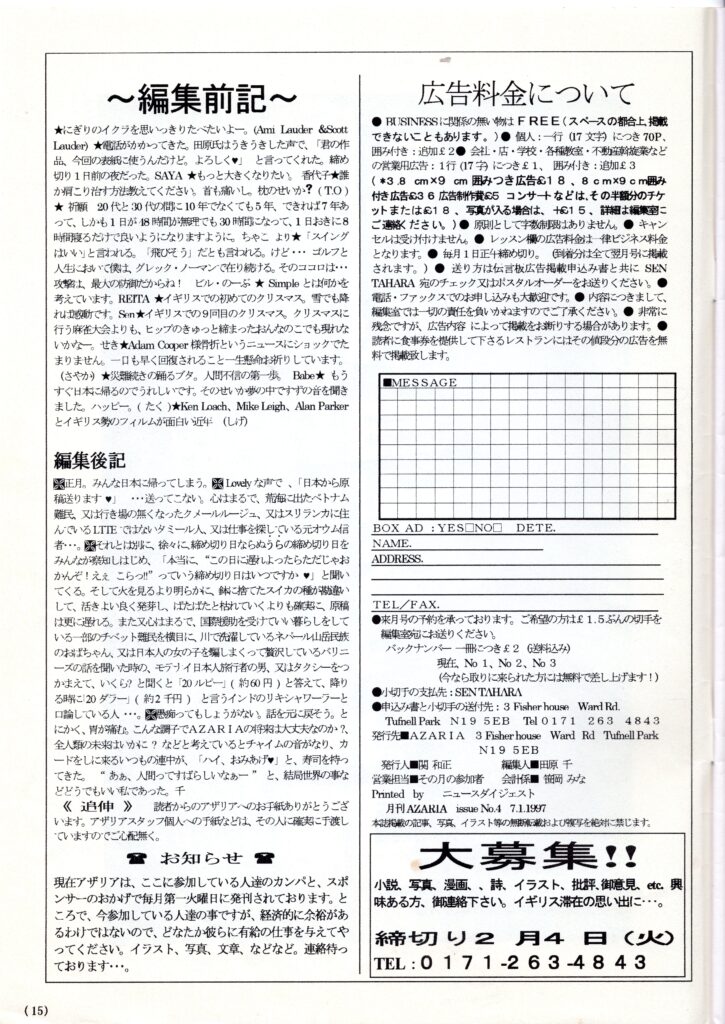 ～編集前記～
★にぎりのイクラを思いっきりたべたいよー。(Ami Lauder &Scott
Lauder) ★電話がかかってきた。田原氏はうきうきした声で、「君の作
品、今回の表紙に使うんだけど。よろしく♥」 と言ってくれた。締め
切り1日前の夜だった。SAYA ★もっと大きくなりたい。 香代子★誰
か肩こり治す方法教えてください。首も痛いし。枕のせいか? (T.O)
★ 祈願 20代と30代の間に10年でなくても5年、できれば7年あ
って、しかも1日が48時間が無理でも30時間になって、1日おきに8
時間寝るだけで良いようになりますように。ちゃこ より★「スイング
はいい」と言われる。「飛びそう」だとも言われる。けど･･･ ゴルフと
人生において僕は、グレック・ノーマンで在り続ける。そのココロは･･･
攻撃は、最大の防御だからね! ビル・のーぶ ★ Simple とは何かを
考えています。REITA ★イギリスでの初めてのクリスマス。雪でも降
れば感動です。Sen★イギリスでの9回目のクリスマス。クリスマスに
行う麻雀大会よりも、ヒップのきゅっと締まったおんなのこでも現れな
いかなー。せき★Adam Cooper 様骨折というニュースにショックでた
まりません。一日も早く回復されること一生懸命お祈りしています。
(さやか) ★災難続きの踊るブタ。人間不信の第一歩。 Babe★ もう
すぐ日本に帰るのでうれしいです。そのせいか夢の中ですずの音を聞き
ました。ハッピー。( たく )★Ken Loach、Mike Leigh、Alan Parker
とイギリス勢のフィルムが面白い近年 (しげ)
編集後記
正月。みんな日本に帰ってしまう。 Lovely な声で、「日本から原
稿送ります ♥」 ･･･送ってこない。心はまるで、荒海に出たベトナム
難民、又は行き場の無くなったクメールルージュ、又はスリランカに住
んでいる LTTE ではないタミール人、又は仕事を探している元オウム信
者･･･。それとは別に、徐々に、締め切り日ならぬうらの締め切り日を
みんなが察知しはじめ、「本当に、“この日に遅れよったらただじゃお
かんぞ！えぇ こらっ!!” っていう締め切り日はいつですか ♥」と聞い
てくる。そして火を見るより明らかに、鉢に捨てたスイカの種が勘違い
して、活きよい良く発芽し、ばたばたと枯れていくよりも確実に、原稿
は更に遅れる。また又心はまるで、国際援助を受けていい暮らしをして
いる一部のチベット難民を横目に、川で洗濯しているネパール山岳民族
のおばちゃん、又は日本人の女の子を騙しまくって贅沢しているバリニ
ーズの話を聞いた時の、モテナイ日本人旅行者の男、又はタクシーをつ
かまえて、いくら？と聞くと「20ルピー」( 約60円 ) と答えて、降り
る時に「20ダラー」( 約2千円 ) と言うインドのリキシャワーラーと
口論している人･･･。愚痴ってもしょうがない。話を元に戻そう。と
にかく、胃が痛む。こんな調子でAZARIAの将来は大丈夫なのか？、
全人類の未来はいかに？ などと考えているとチャイムの音がなり、カ
ードをしに来るいつもの連中が、「ハイ、おみあげ♥」と、寿司を持っ
てきた。 “ あぁ、人間ってすばらしいなぁー ” と、結局世界の事な
どどうでもいい私であった。千
《 追伸 》 読者からのアザリアへのお手紙ありがとうござ
います。アザリアスタッフ個人への手紙などは、その人に確実に手渡し
ていますのでご心配無く。
☎ お知らせ ☎
現在アザリアは、ここに参加している人達のカンパと、スポ
ンサーのおかげで毎月第一火曜日に発刊されております。と
ころで、今参加している人達の事ですが、経済的に余裕があ
るわけではないので、どなたか彼らに有給の仕事を与えてや
ってください。イラスト、写真、文章、などなど。連絡待っ
ております･･･。
(15)
広告料金について
● BUSINESSに関係の無い物は FREE(スペースの都合上、掲載
できないこともあります。) ● 個人：一行 (17文字) につき 70P、
囲み付き：追加£2● 会社・店・学校・各種教室・不動産斡旋業など
の営業用広告：1行 (17字) につき£1、 囲み付き：追加£3
(*3.8 cm×9 cm 囲みつき広告£18、8 cm×9 cm囲み
付き広告£36 広告制作費£5 コンサートなどは、その半額分のチケ
ットまたは£18、写真が入る場合は、+£15、詳細は編集室に
ご連絡ください。) ● 原則として字数制限はありません。● キャン
セルは受け付けません。● レッスン欄の広告料金は一律ビジネス料金
となります。● 毎月1日正午締め切り。 (到着分は全て翌月号に掲載
されます。) ● 送り方は伝言板広告掲載申込み書と共に SEN
TAHARA 宛のチェック又はポスタルオーダーをお送りください。●
電話・ファックスでのお申し込みも大歓迎です。● 内容につきまして、
編集室では一切の責任を負いかねますのでご了承ください。● 非常に
残念ですが、広告内容 によって掲載をお断りする場合があります。●
読者に食事券を提供して下さるレストランにはその値段分の広告を無
料で掲載致します。
■MESSAGE
BOX AD : YES□NO□ DETE.
NAME.
ADDRESS.
TEL/FAX.
●来月号の予約を承っております。ご希望の方は£1.5ぶんの切手を
編集室宛にお送りください。
バックナンバー 一冊につき£2 (送料込み)
現在、No 1、No 2、No 3
(今なら取りに来られた方には無料で差し上げます！)
●小切手の支払先：SEN TAHARA
●申込み書と小切手の送付先：3 Fisher house Ward Rd.
Tufnell Park N19 5EB Tel 0171 263 4843
発行先■AZARIA 3 Fisher house Ward Rd Tufnell Park
N19 5EB
発行人■関 和正 編集人■田原 千
営業担当■その月の参加者 会計係■ 笹岡 みな
Printed by ニュースダイジェスト
月刊 AZARIA issue No.4 7.1.1997
本誌掲載の記事、写真、イラスト等の無断転載および複写を絶対に禁じます。
大募集!!
小説、写真、漫画、、詩、イラスト、批評、御意見、etc. 興
味ある方、御連絡下さい。イギリス滞在の思い出に･･･。
締切り2 月4 日(火)
TEL：0171-263-4843